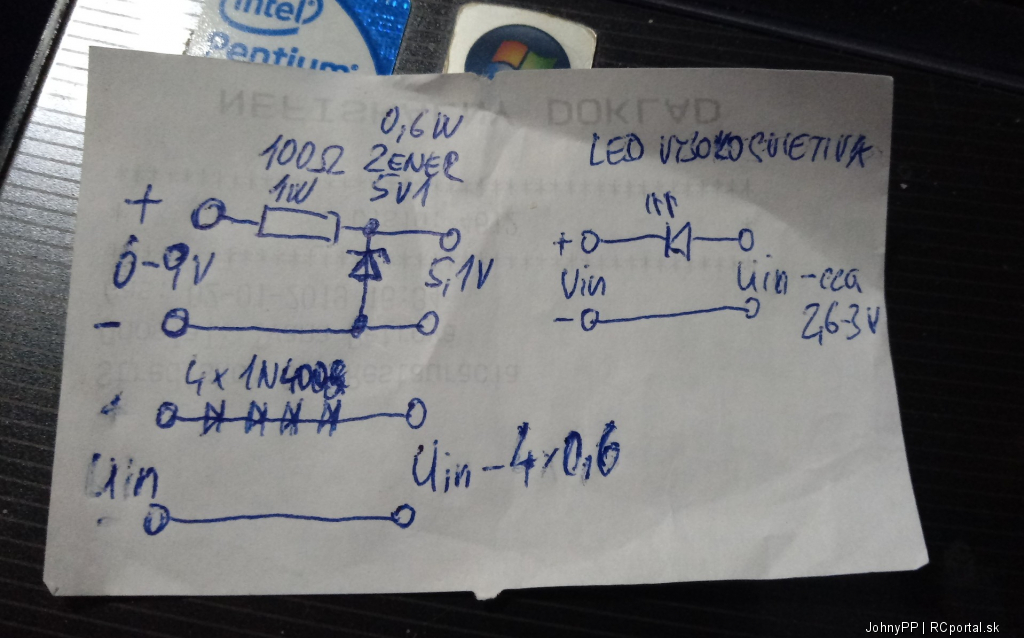 intel
Pentium
NEFISKALNY DOKLAD
0,6W
100Ω ZENER
1W 5V1
+
6-9V
5,1V
-
LED VYSOKOSVIETIVA
+
Uin
Uin -cca
-
2,6-3V
4x1N400
+
Uin
Uin-4x0,6
-
JohnyPP | RCportal.sk